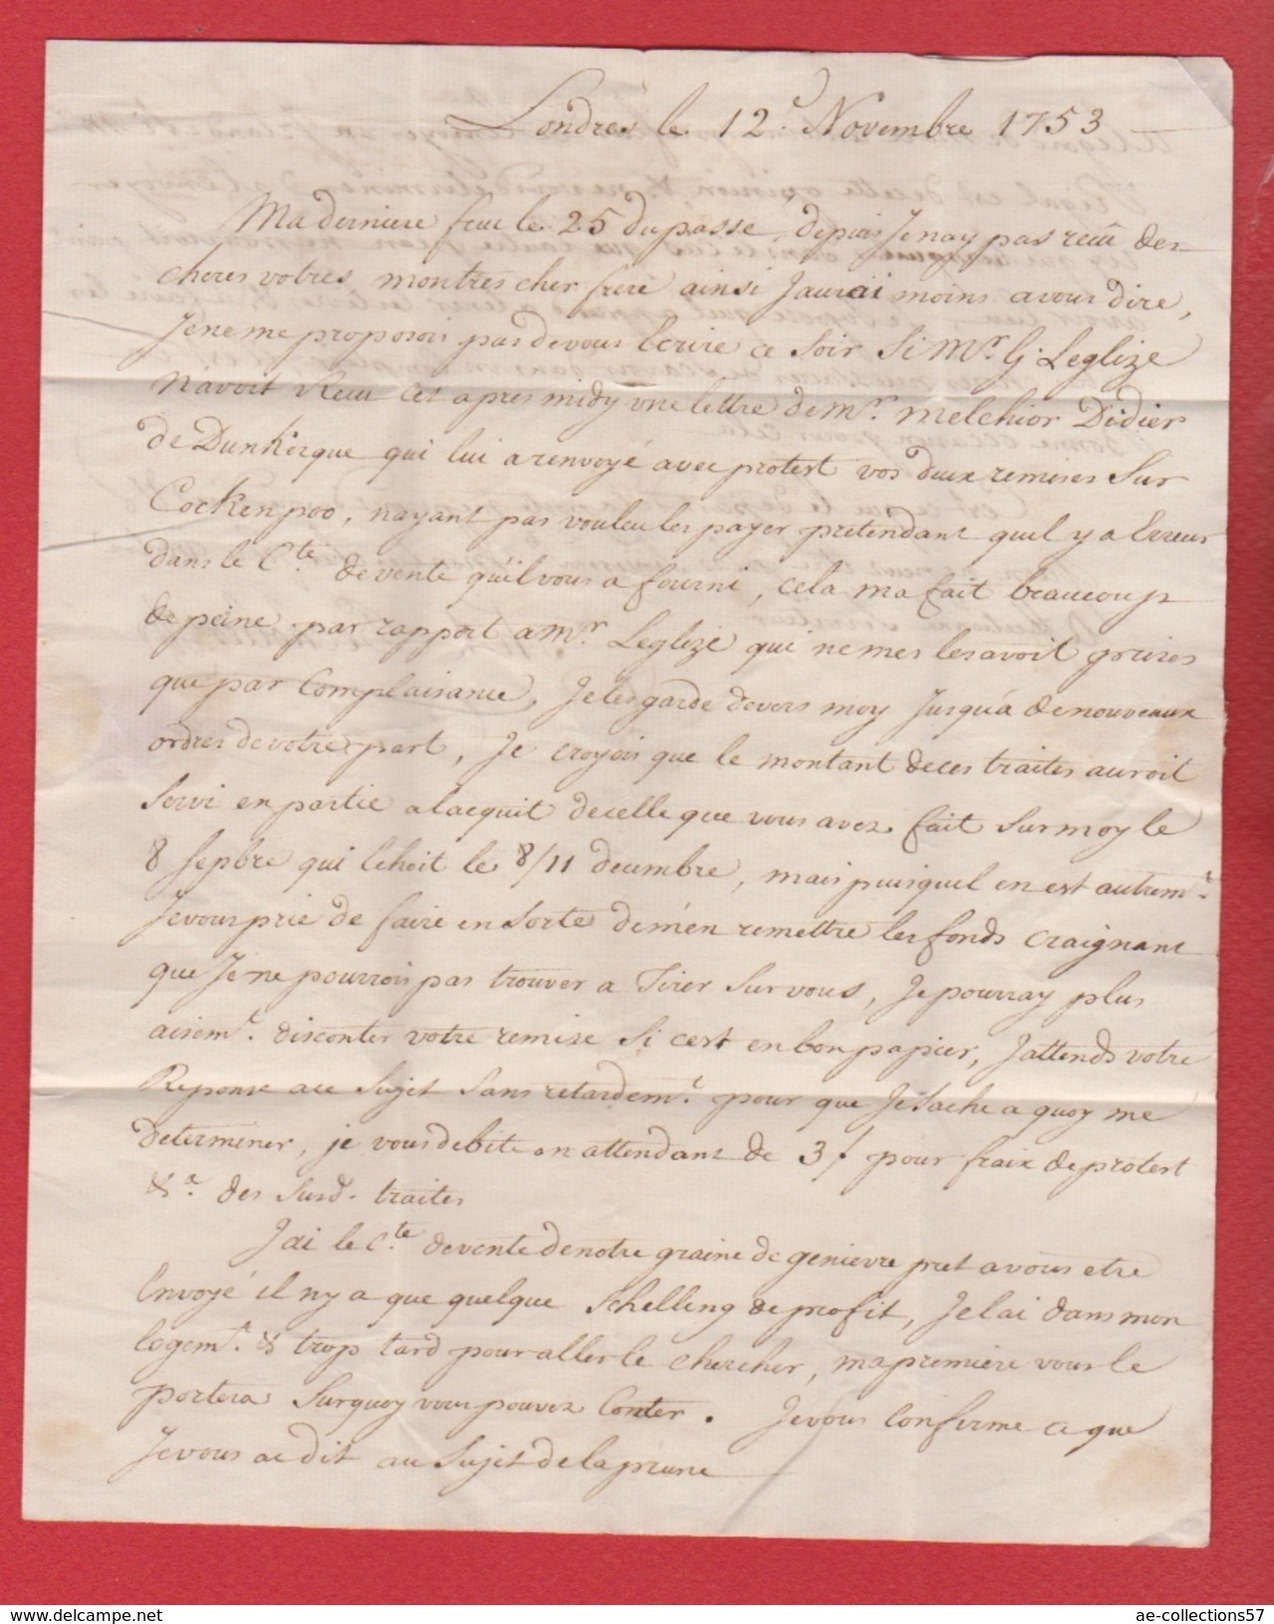 Londres le 12.e Novembre 1753
Ma derniere feut le 25 du passe, depuis Je nay pas reçu des
cheres votres, mon tres cher frere ainsi Jaurai moins a vous dire,
Je ne me proposois pas de vous Ecrire ce Soir Si Mr. G. Leglize
N'avoit Receu cet apres midy vne lettre de mr. Melchior Didier
de Dunkerque qui lui a renvoyé avec protest vos deux remises Sur
Cockenpoo, nayant pas vouleu les payer pretendant quil y a Erreur
dans le Cte. de vente qu'il vous a fourni, cela ma fait beaucoup
de peine par rapport a mr. Leglize qui ne mes les avoit prises
que par Complaisance, Je les garde devers moy Jusqu'á de nouveaux
ordres de votre part, Je croyois que le montant de ces traites auroit
Servi en partie a lacquit de celle que vous avez fait Sur moy le
8 Sepbre qui Echoit le 8/11 decembre, mais puisquil en est autremt.
Je vous prie de faire en Sorte de m'en remettre les fonds craignant
que Je ne pourrois pas trouver a Tirer Sur vous, Je pourray plus
aisemt. disconter votre remise Si cest en bon papier, Jattends votre
Reponse a ce Sujet Sans retardemt. pour que Je Sache a quoy me
determiner, je vous debite en attendant de 3/ pour fraix de protest
&a. des Susd. traites
J'ai le Cte. de vente de notre graine de genievre pret a vous etre
Envoyé il ny a que quelque Schelling de profit, Je lai dans mon
logemt. & trop tard pour aller le chercher, ma premiere vous le
portera Sur quoy vous pouvez Conter. Je vous Confirme ce que
Je vous ai dit au Sujet de la prune
ae-collections57